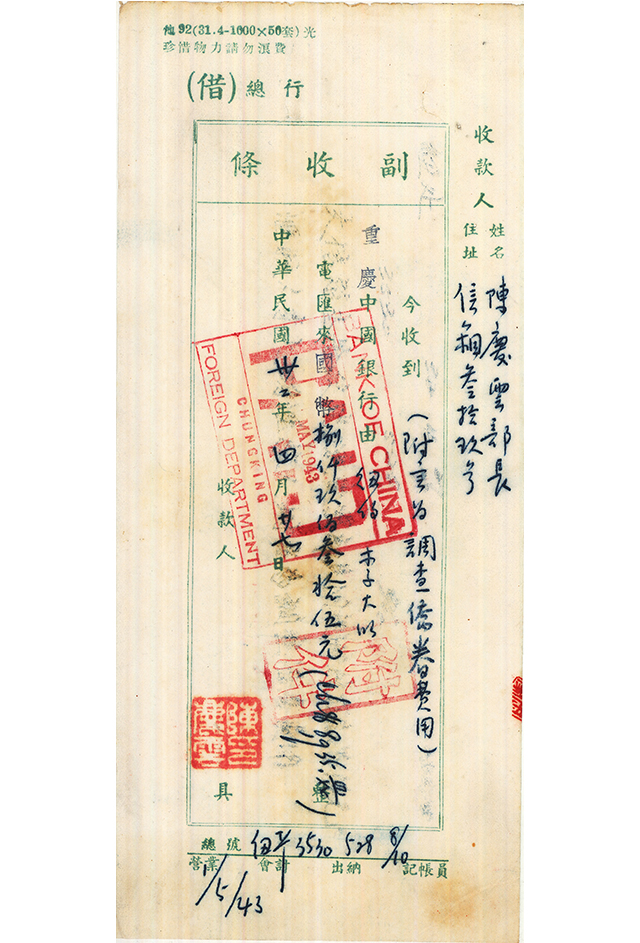 他92(31.4-1000×50套)光
珍惜物力請勿浪費
(借)總行
副收條
收款人
姓名 陳慶雲部長
住址 信箱叁拾玖号
今收到(附言為調查僑眷費用)
重慶中國銀行由紐約
電匯來國幣捌仟玖佰叁拾伍元整
中華民國卅二年四月廿七日
收款人 具
陳印慶雲
BANK OF CHINA
PAID
MAY 1943
CHUNGKING
FOREIGN DEPARTMENT
附件
總號 3530 528 8/10
營業 會計 出納 記帳員
1/5/43